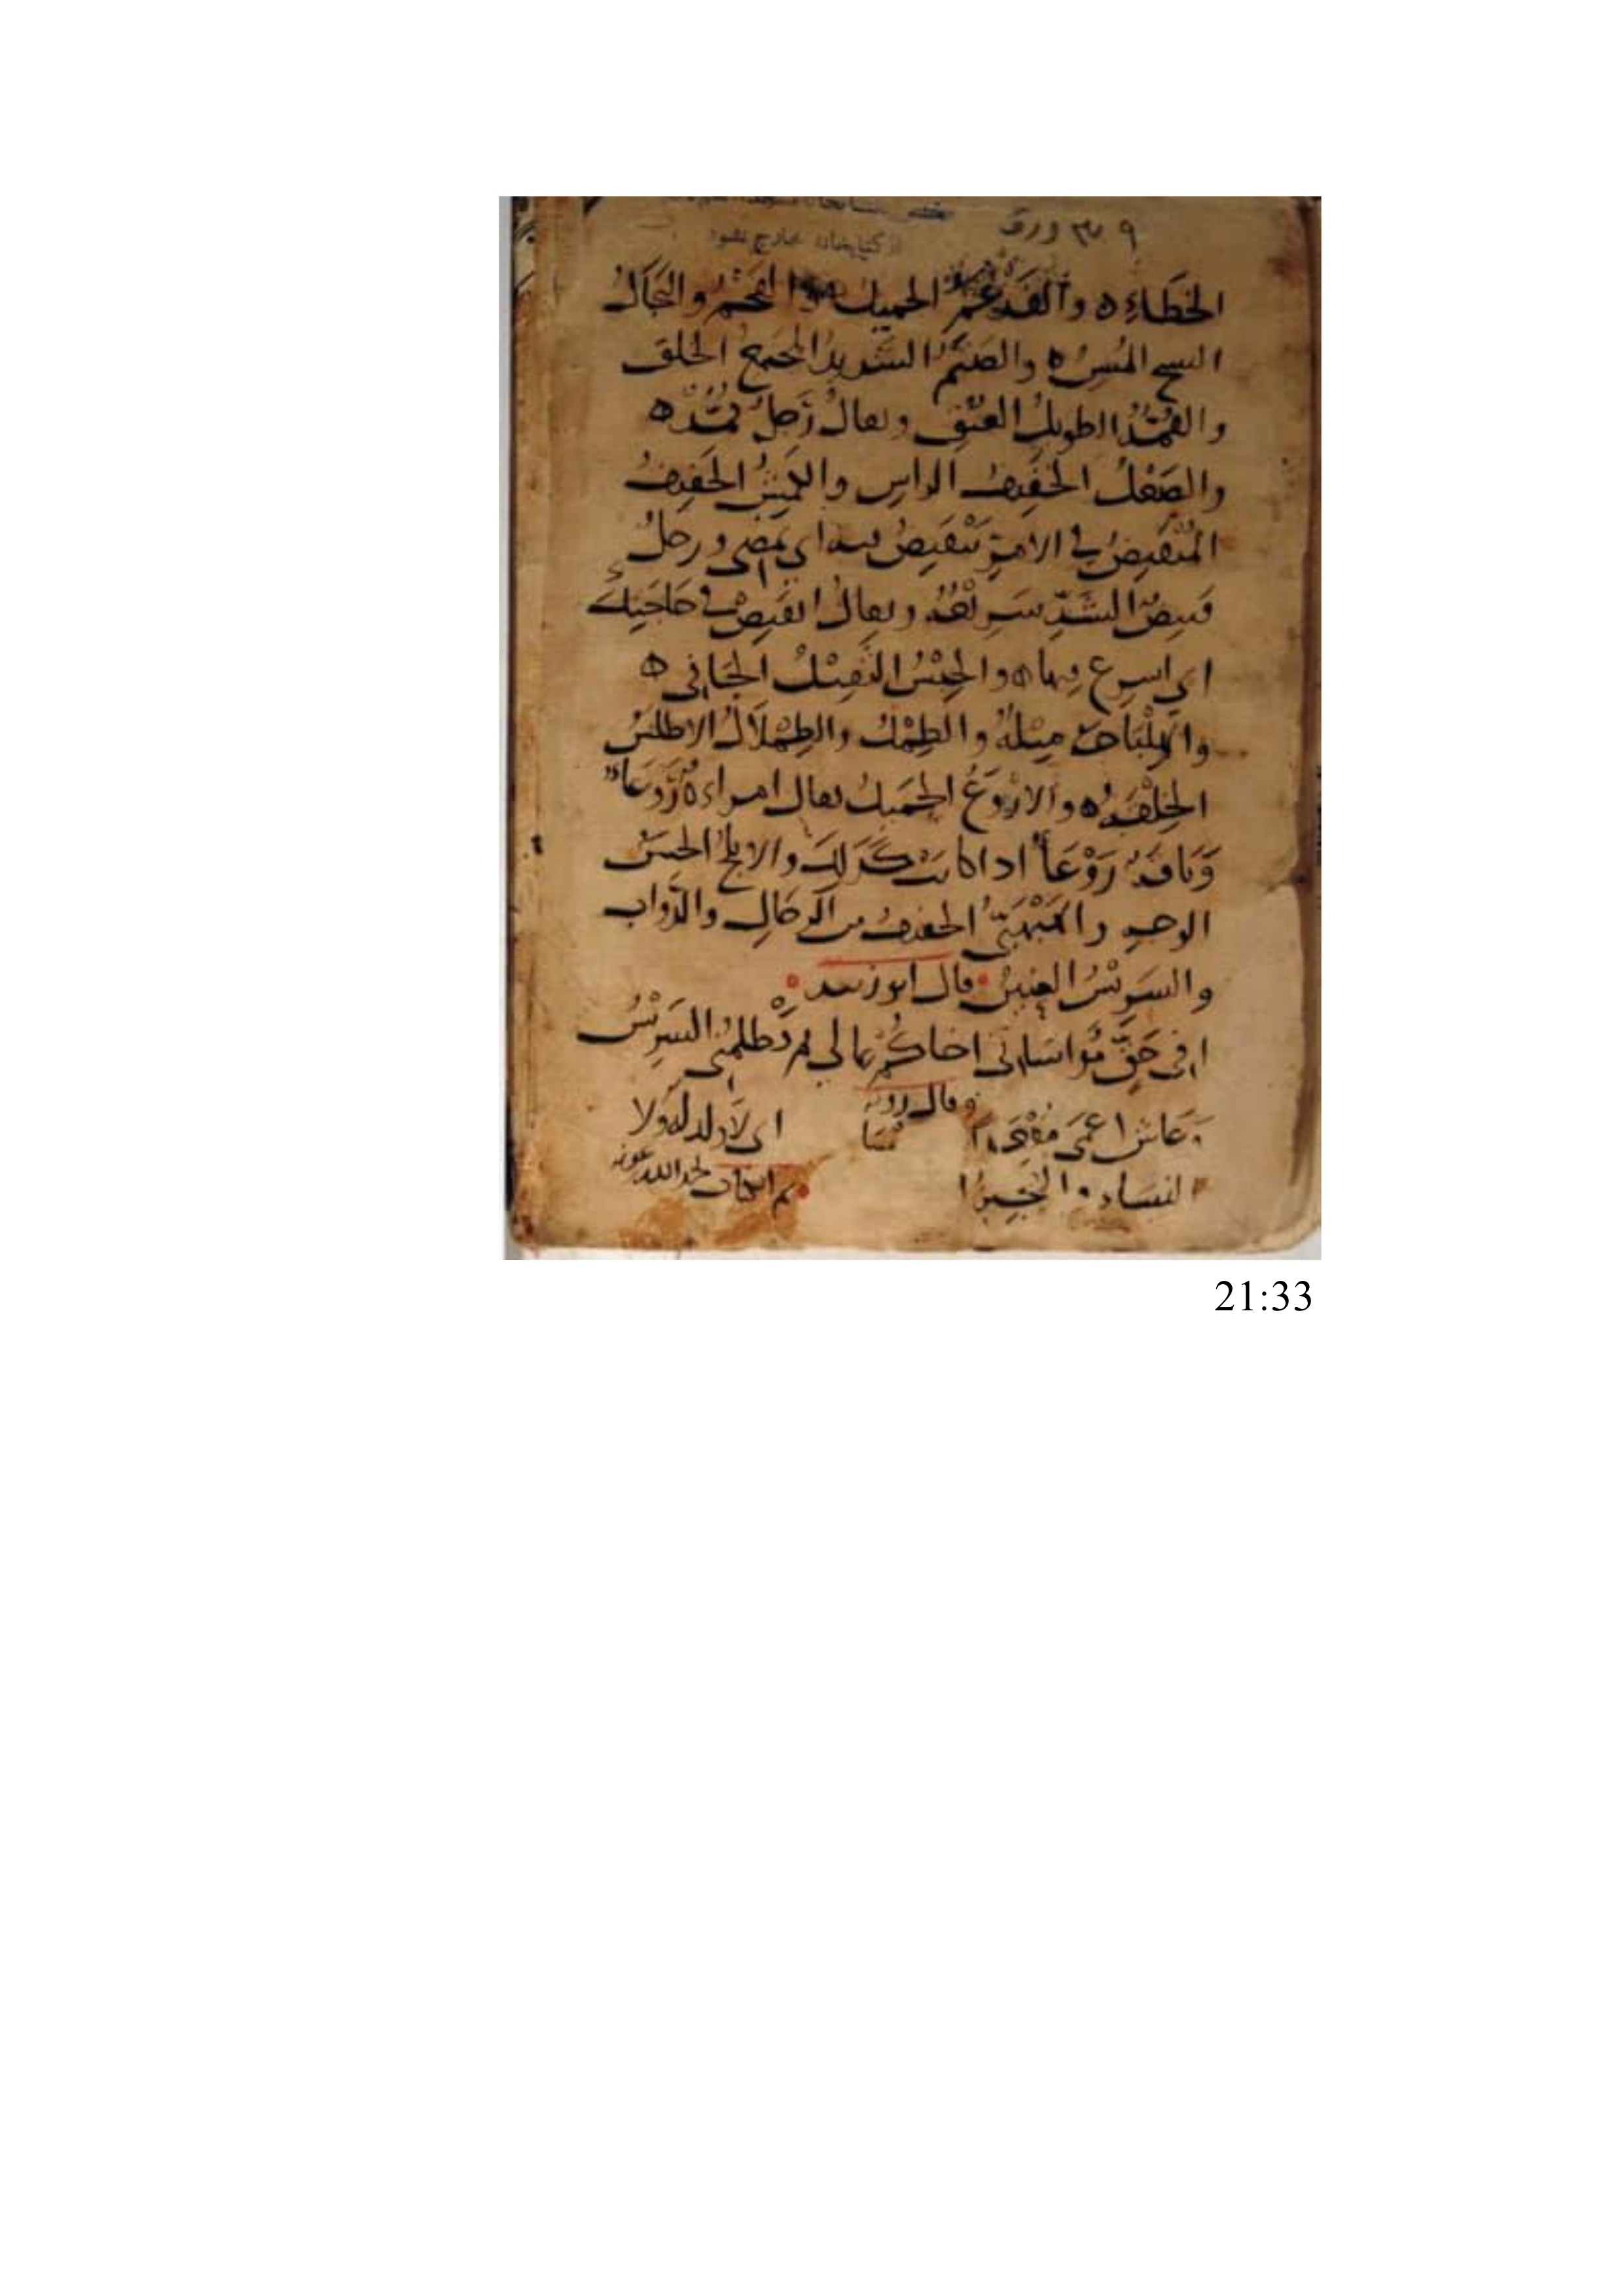 ٩ ورق
از کتابخانه خارج نشود
الخَطَاءِ ه والفَدْغَمُ الجميل والقَحْمُ والبَجَالُ
الشيخ المُسِنُّ ه والصَتَمُ الشديد المجتمع الخلق
والقُمُدُّ الطويل العُنُقِ ويقال رَجُلٌ قُمُدٌّ ه
والصَعْلُ الخَفيفُ الراسِ والكَمِيشُ الخَفيفُ
المُنْقَبِضُ في الامرِ يَنْقَبِضُ فيه اي يَمضِي ورجلٌ
قَبيضُ الشَدِّ سَرِيعُهُ ويقال انقَبِضْ في حَاجَتِكَ
اي اسرع فيها ه والجِبْسُ الثقيلُ الجَافي ه
والهِلْبَاجَةُ مِثلُهُ والطِمْلُ والطِمْلَالُ الاطلسُ
الخِلْقَةِ ه والارْوَعُ الجَميلُ يقال امراءة رَوْعَاءُ
وَنَاقَةٌ رَوْعَاءُ اذا كانت كَذَلِكَ والابلجُ الحسَنُ
الوجهِ والهَبْهَبِيُّ الخفيفُ من الرجَالِ والدَّوابِ
والسَرِيْسُ العِنينُ قال ابو زبيد
افي حَقٍّ مُواسَاتي اخاكُمْ بمالي ثم يَظلمُني السَرِيْسُ
وقال روبة
وعاش اعمَى مُقْعَدًا اي لا ولد له ولا
النساء و
تم الكتاب بحمد الله وعونه
21:33